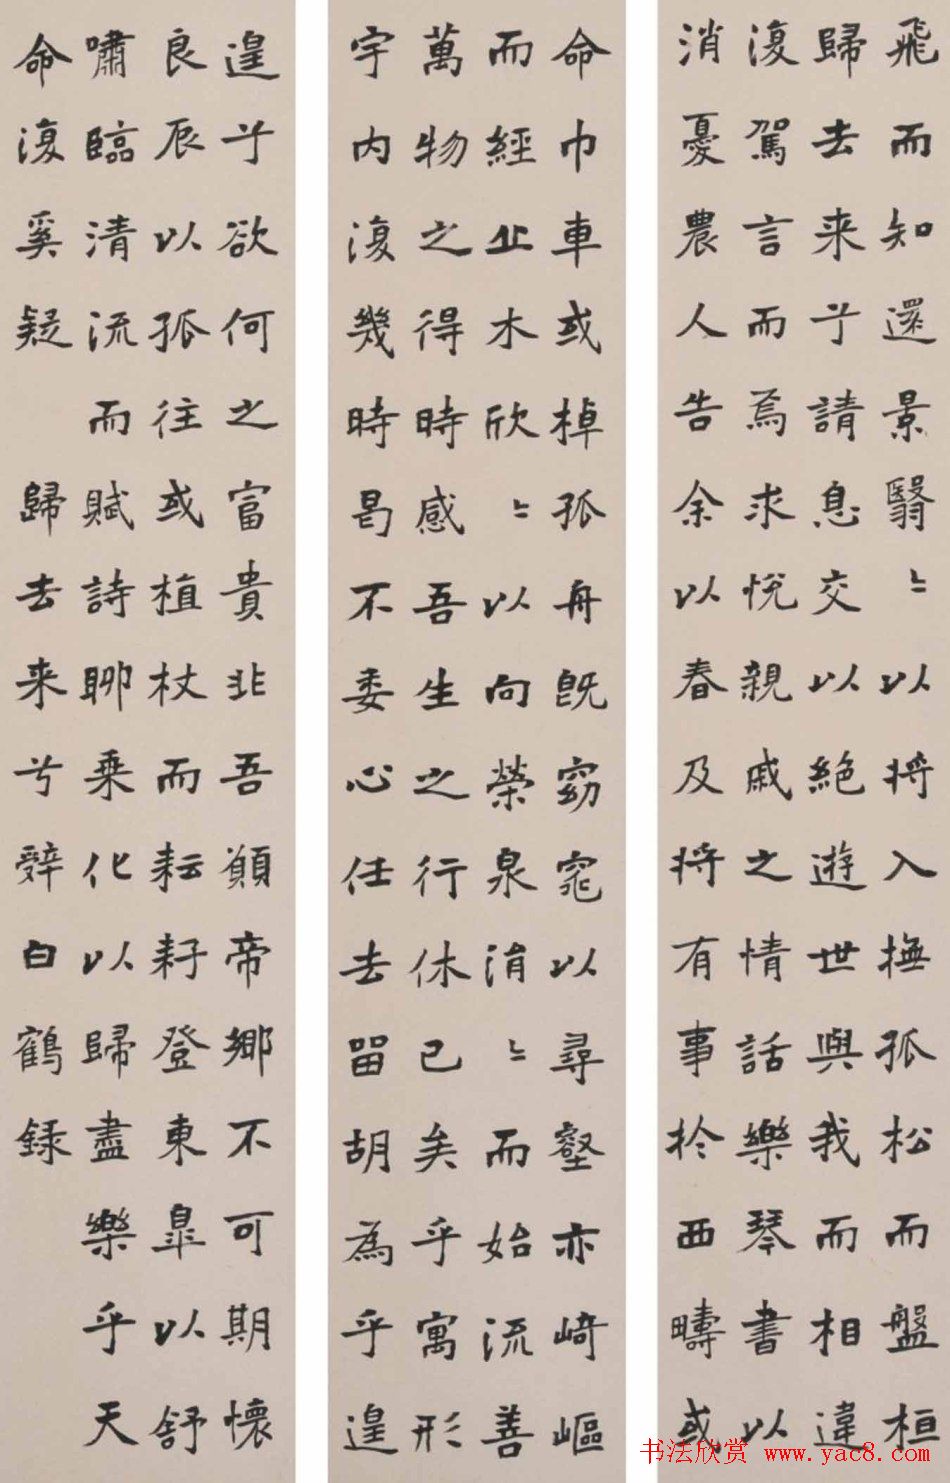 飛而知還景翳〻以将入撫孤松而盤桓
歸去来兮請息交以絶遊世與我而相違
復駕言而焉求悦親戚之情話樂琴書以
消憂農人告余以春及将有事於西疇或
命巾車或棹孤舟既窈窕以尋壑亦崎嶇
而經丘木欣〻以向榮泉涓〻而始流善
萬物之得時感吾生之行休已矣乎寓形
宇内復幾時曷不委心任去留胡為乎遑
遑兮欲何之富貴非吾願帝鄉不可期懷
良辰以孤往或植杖而耘耔登東皐以舒
嘯臨清流而賦詩聊乗化以歸盡樂乎天
命復奚疑 歸去来兮辭白鶴録
书法欣赏 www.yac8.com